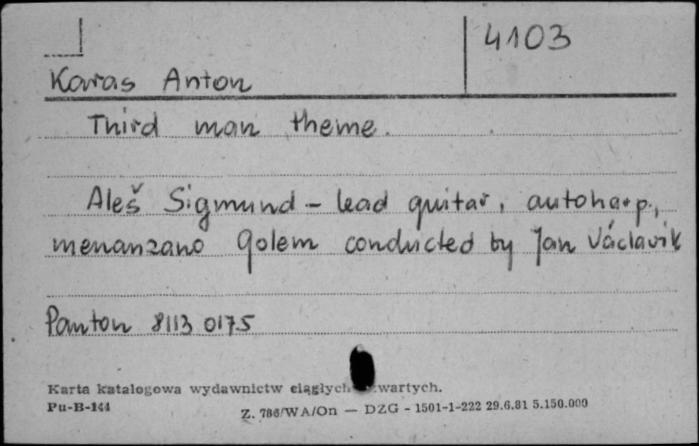 4103
Karas Anton
Third man theme.
Aleš Sigmund - lead guitar, autoharp.,
menanzano Golem conducted by Jan Václavik
Panton 8113 0175
Karta katalogowa wydawnictw ciągłych wartych.
Pu-B-144
Z. 786/WA/On — DZG - 1501-1-222 29.6.81 5.150.000